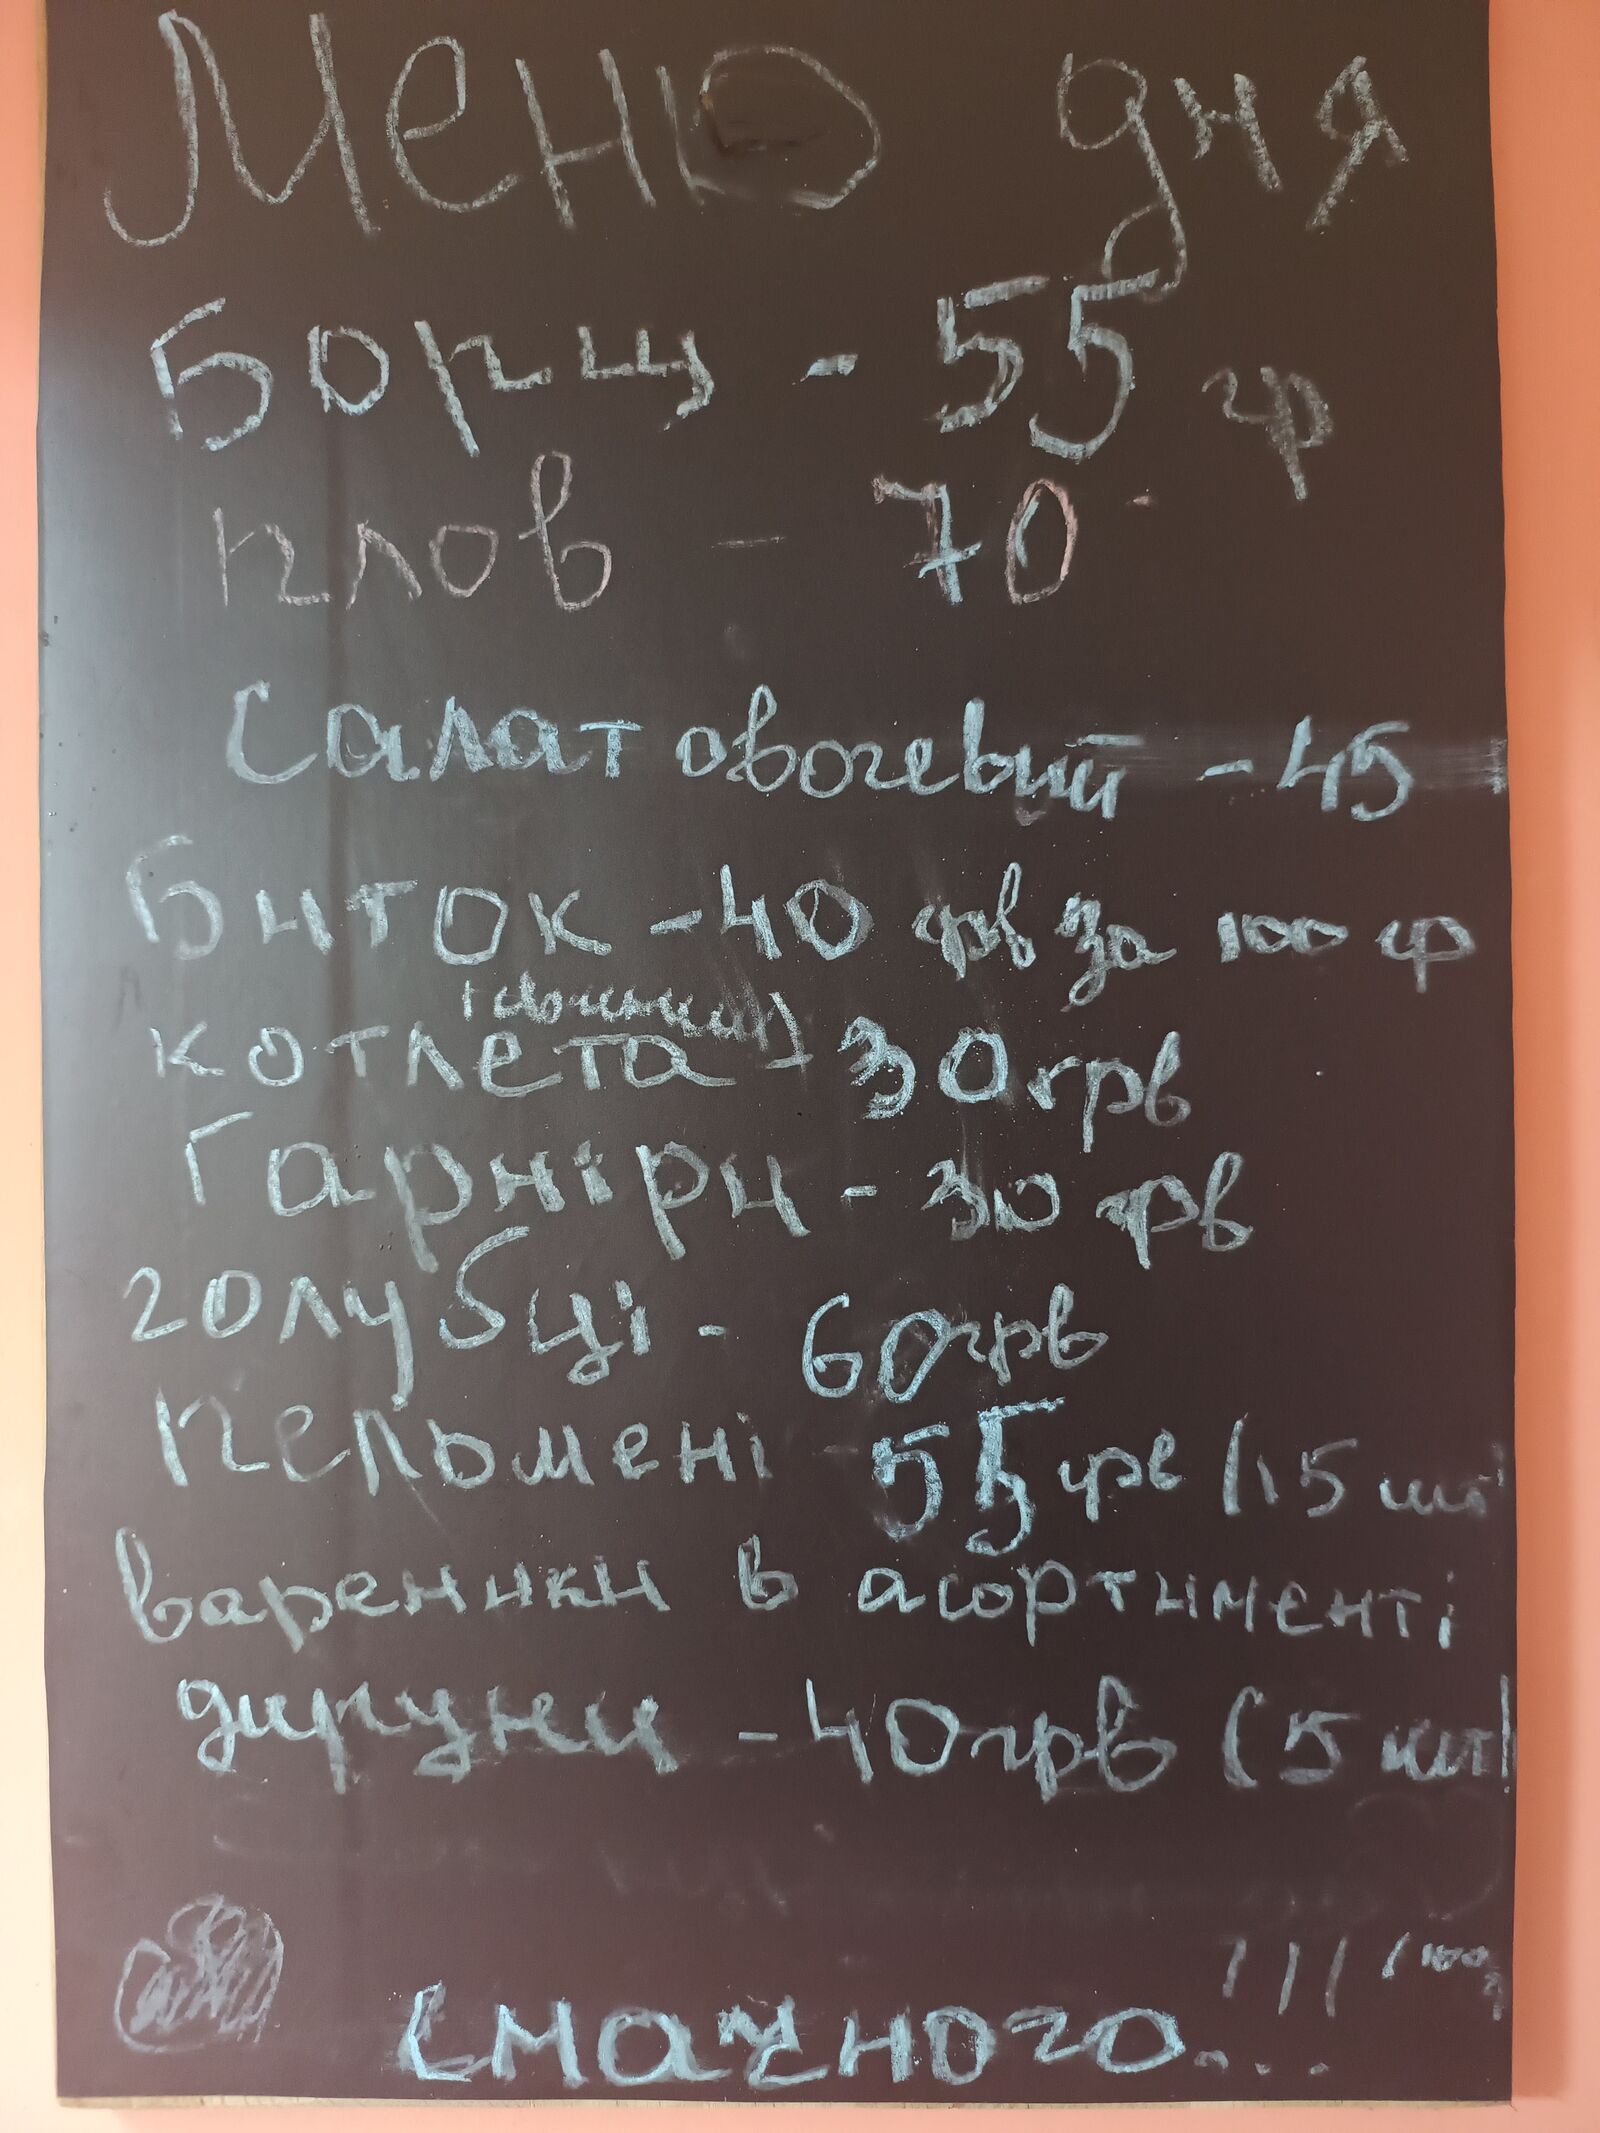 Меню дня
Борщ - 55 гр
плов - 70
Салат овочевий - 45
Биток - 40 грв за 100 гр
(свинний)
котлета - 30 грв
Гарніри - 30 грв
голубці - 60 грв
Пельмені 55 грв (15 шт)
вареники в асортименті
дируни - 40 грв (5 шт)
Смачного...